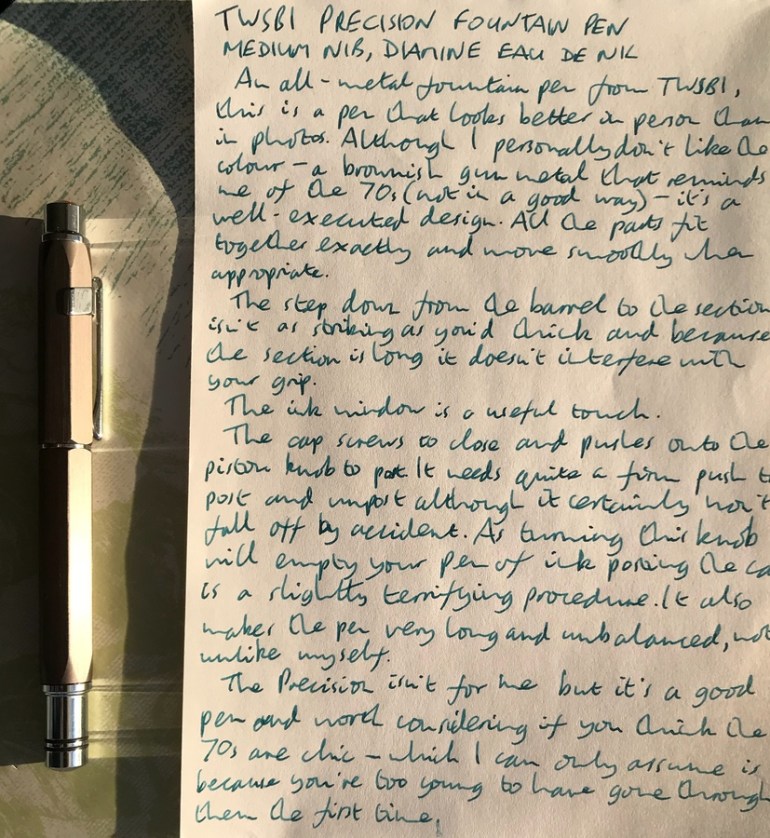 TWSBI PRECISION FOUNTAIN PEN
MEDIUM NIB, DIAMINE EAU DE NIL
An all-metal fountain pen from TWSBI,
this is a pen that looks better in person than
in photos. Although I personally don't like the
colour - a brownish gun metal that reminds
me of the 70s (not in a good way) - it's a
well-executed design. All the parts fit
together exactly and move smoothly when
appropriate.
The step down from the barrel to the section
isn't as striking as you'd think and because
the section is long it doesn't interfere with
your grip.
The ink window is a useful touch.
The cap screws to close and pushes onto the
piston knob to post. It needs quite a firm push to
post and unpost although it certainly won't
fall off by accident. As turning this knob
will empty your pen of ink posting the ca
is a slightly terrifying procedure. It also
makes the pen very long and unbalanced, not
unlike myself.
The Precision isn't for me but it's a good
pen and worth considering if you think the
70s are chic - which I can only assume is
because you're too young to have gone through
them the first time.